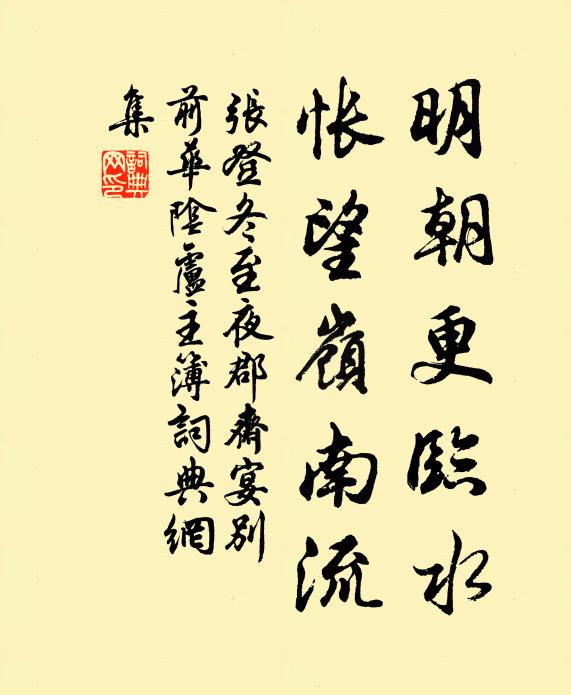 明朝更臨水
悵望嶺南流
張登冬至夜郡齋宴別
前華陰盧主簿詞典網
集
詞典網印